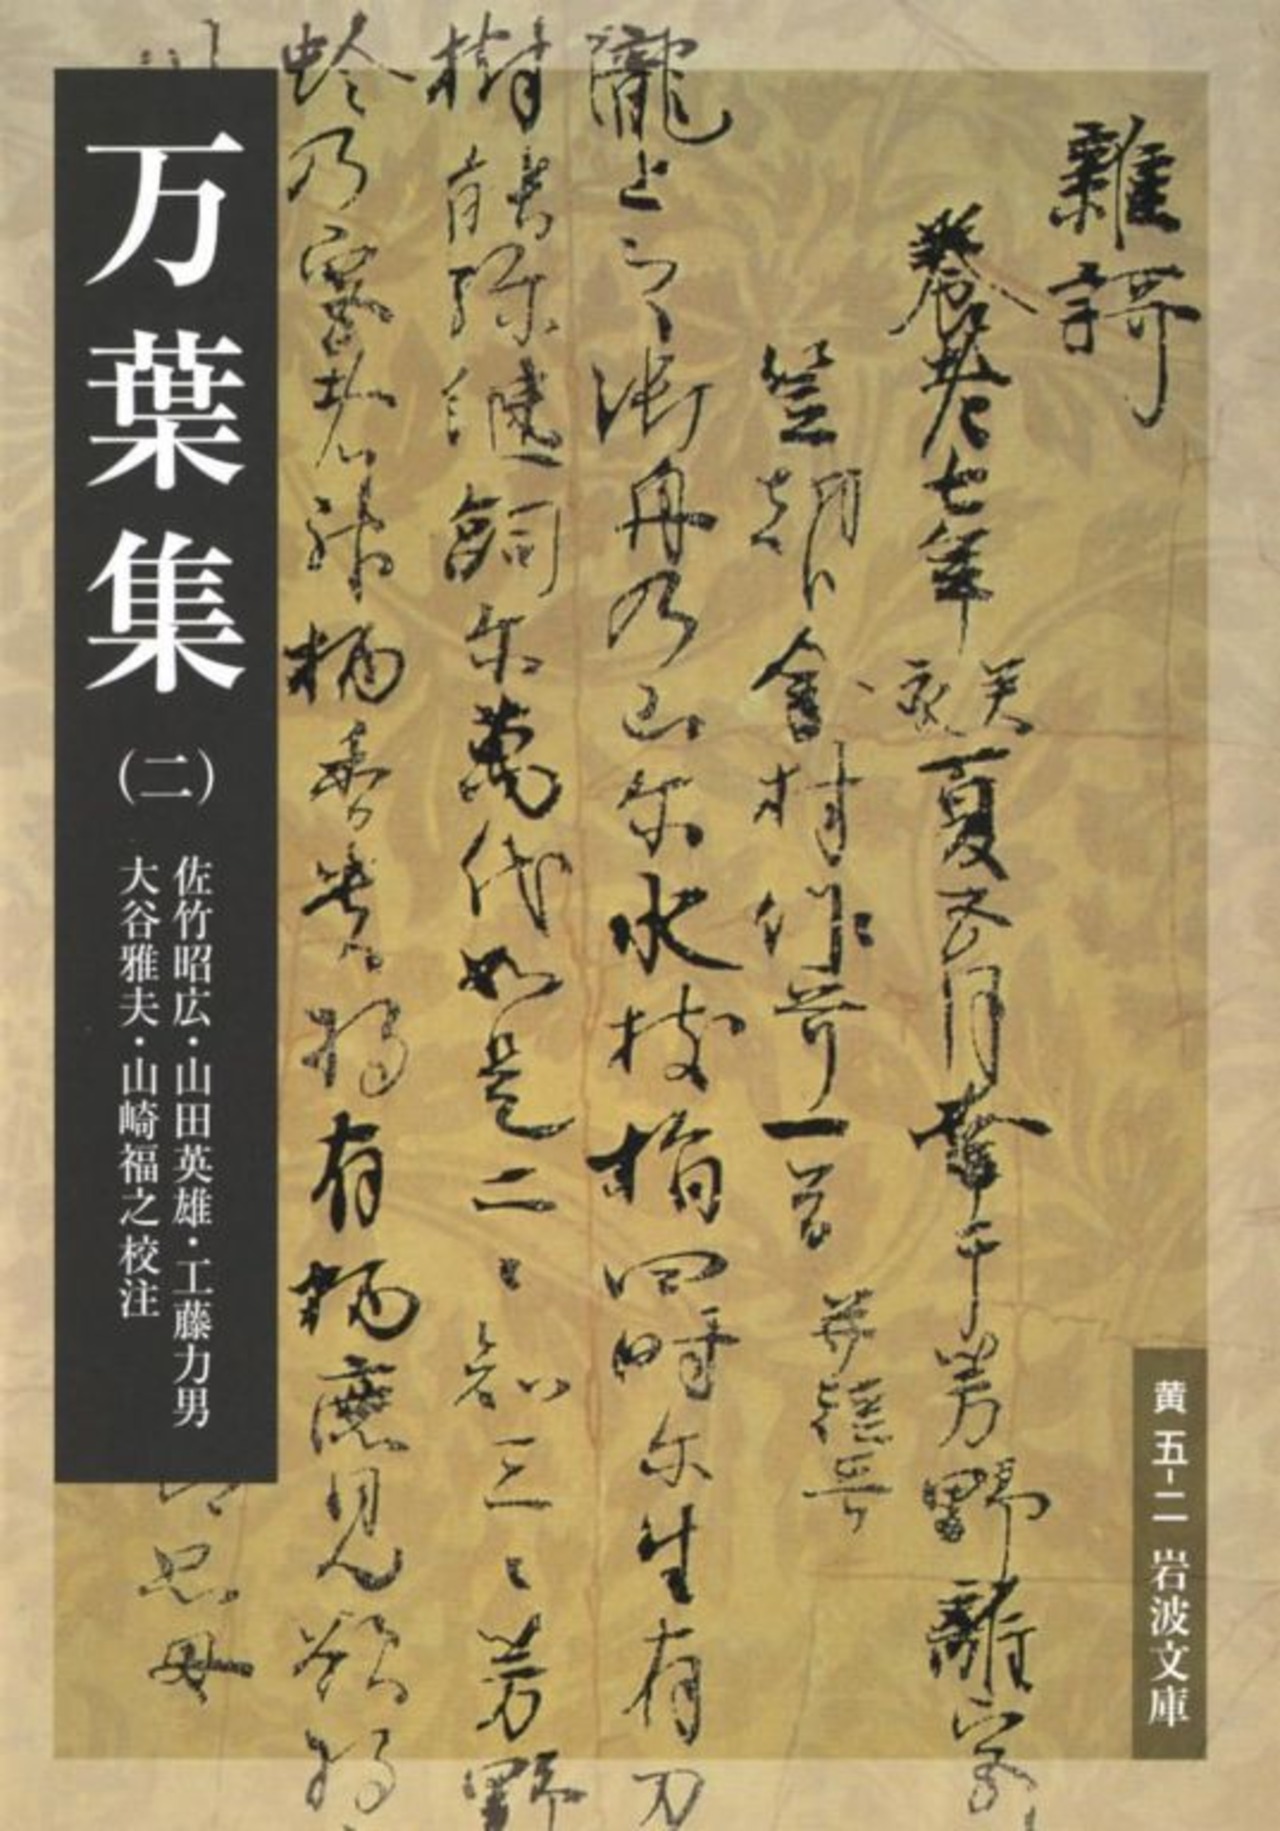 雜謌
養老七年癸亥夏五月幸于芳野離宮
笠朝臣金村作哥一首 并短哥
瀧上之御舟乃山尓水枝指四時尓生有刀
樹能弥継嗣尓萬代如是二〻知三〻芳野
蛉乃宮者神柄香貴将有柄鹿見欲将
万葉集
(二)
佐竹昭広・山田英雄・工藤力男
大谷雅夫・山崎福之校注
黄五-二 岩波文庫